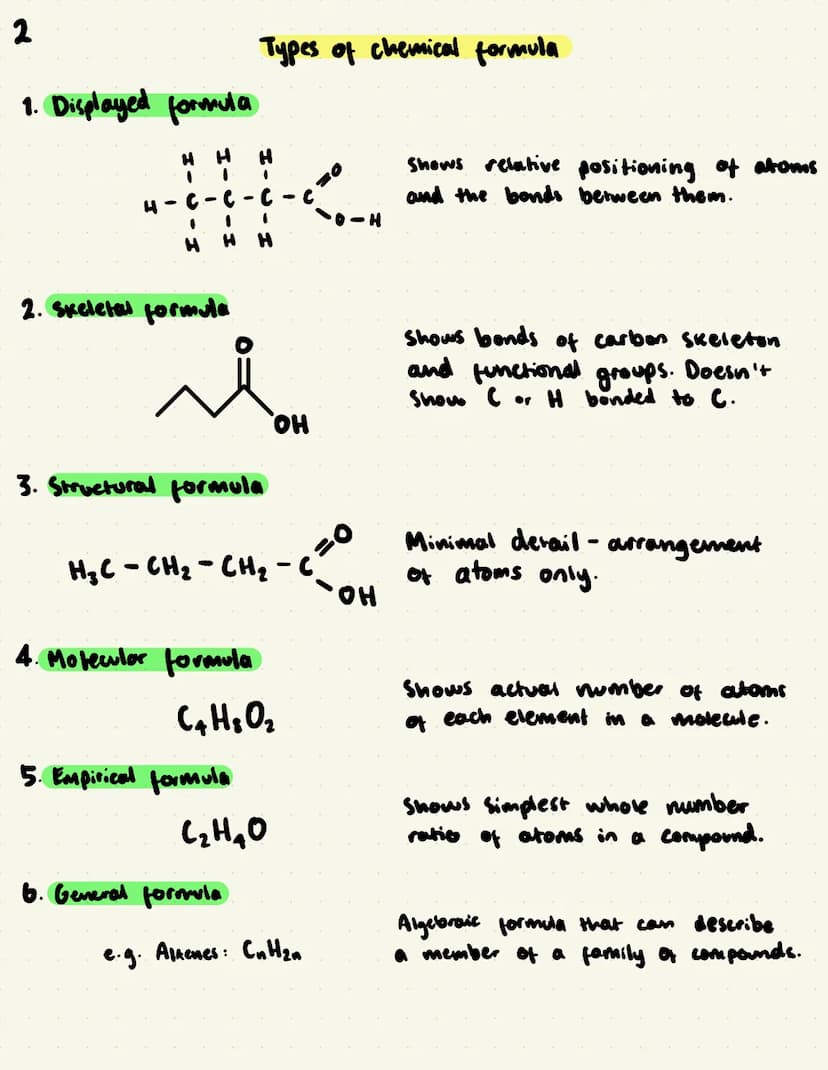 2
Types of chemical formula
1. Displayed formula
H H H
H - C - C - C - C O
O - H
H H H
Shows relative positioning of atoms
and the bonds between them.
2. Skeletal formula
O
OH
Shows bonds of carbon skeleton
and functional groups. Doesn't
show C or H bonded to C.
3. Structural formula
H₃C - CH₂ - CH₂ - C O
OH
Minimal detail - arrangement
of atoms only.
4. Molecular formula
C₄H₈O₂
Shows actual number of atoms
of each element in a molecule.
5. Empirical formula
C₂H₄O
Shows simplest whole number
ratio of atoms in a compound.
6. General formula
e.g. Alkenes: CnH2n
Algebraic formula that can describe
a member of a family of compounds.